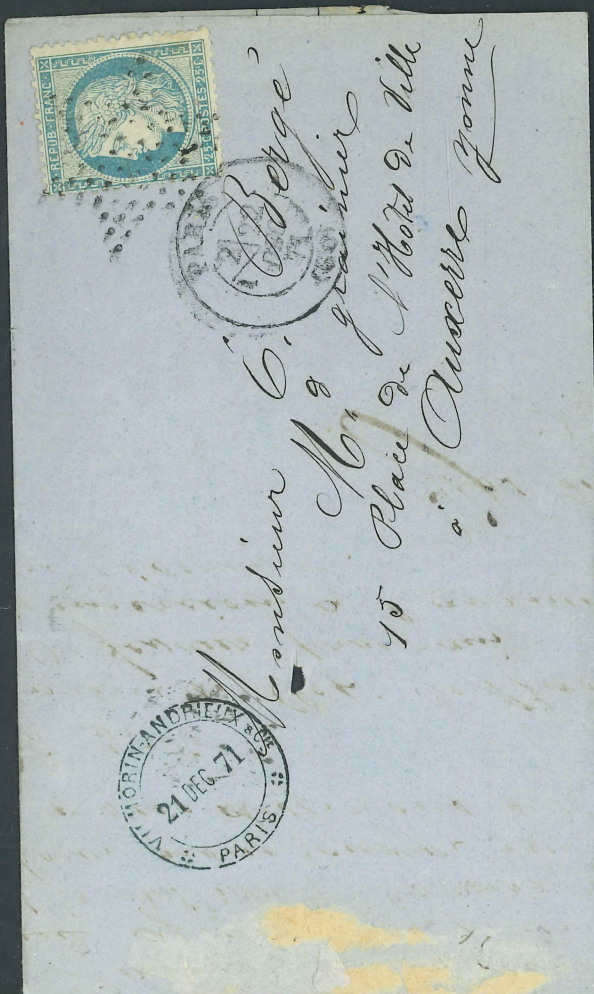 REPUB. FRANC.
25 C. POSTES 25 C.
PARIS
21
DEC.
71
(60)
Monsieur E. Bergé
Md grainier
15 Place de l'Hôtel de Ville
à Auxerre
Yonne
VILMORIN-ANDRIEUX & CIE
21 DEC. 71
PARIS